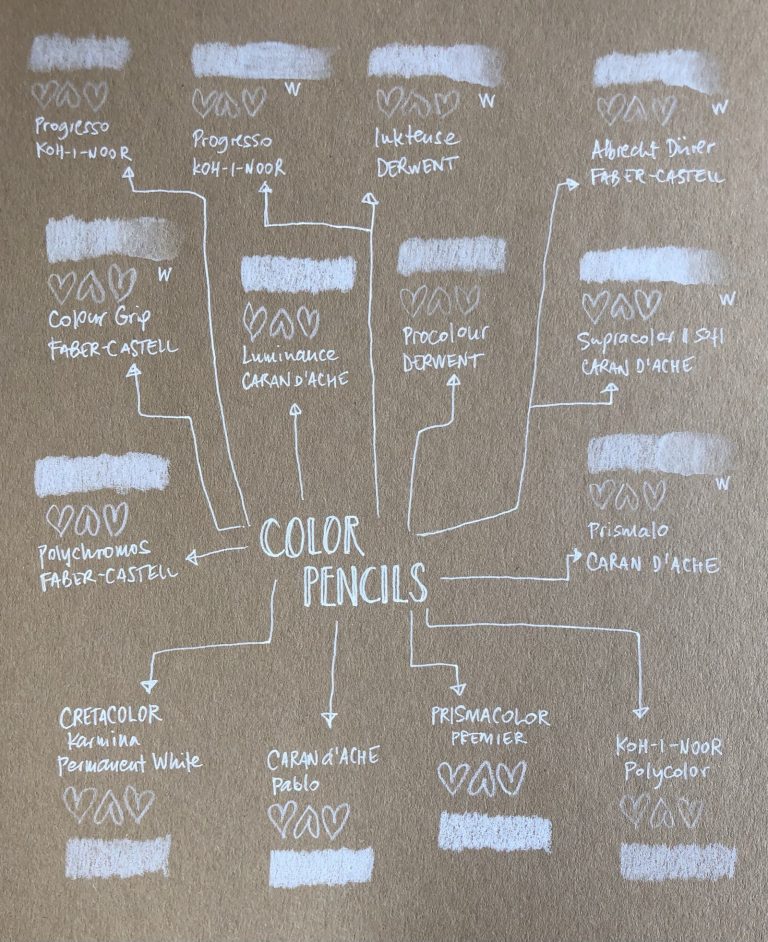 W
Progresso
KOH-I-NOOR
Progresso
KOH-I-NOOR
W
Inktense
DERWENT
W
Albrecht Dürer
FABER-CASTELL
W
Colour Grip
FABER-CASTELL
Luminance
CARAN D'ACHE
Procolour
DERWENT
W
Supracolor II Soft
CARAN D'ACHE
Polychromos
FABER-CASTELL
W
Prismalo
CARAN D'ACHE
COLOR
PENCILS
CRETACOLOR
Karmina
Permanent White
CARAN d'ACHE
Pablo
PRISMACOLOR
PREMIER
KOH-I-NOOR
Polycolor